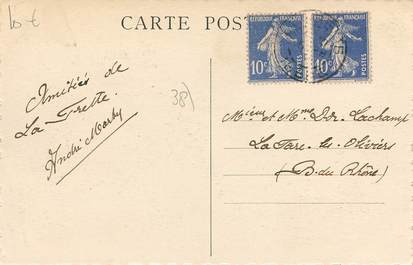 CARTE POS
REPUBLIQUE FRANÇAISE
10c
POSTES
REPUBLIQUE FRANÇAISE
10c
POSTES
Amitiés de
La Frette.
André
38)
Mr et Mme Lachamp
La Fare-les-Oliviers
(B. du Rhône)